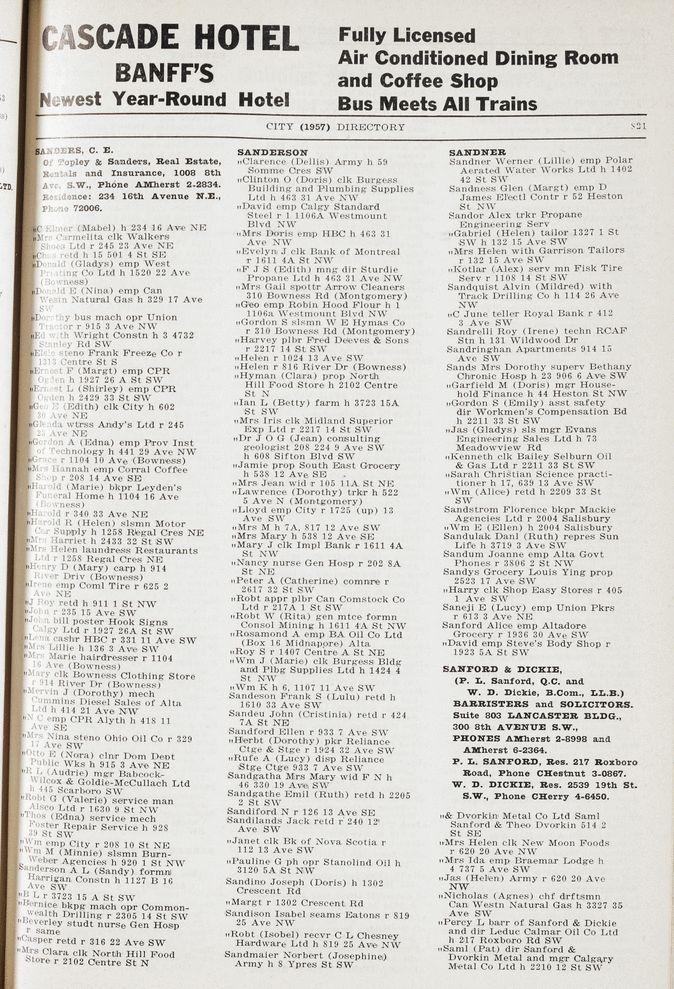 CASCADE HOTEL
BANFF'S
Newest Year-Round Hotel
Fully Licensed
Air Conditioned Dining Room
and Coffee Shop
Bus Meets All Trains
CITY (1957) DIRECTORY
821
SANDERS, C. E.
Of Topley & Sanders, Real Estate,
Rentals and Insurance, 1008 8th
Ave. S.W., Phone AMherst 2-2834.
Residence: 234 16th Avenue N.E.,
Phone 72006.
„C Elmer (Mabel) h 234 16 Ave NE
„Mrs Carmelita clk Walkers
Shoes Ltd r 245 23 Ave NE
„Chas retd h 15 501 4 St SE
„Donald (Gladys) emp West
Printing Co Ltd h 1520 22 Ave
(Bowness)
„Donald E (Nina) emp Can
Westn Natural Gas h 329 17 Ave
SW
„Dorothy bus mach opr Union
Tractor r 915 3 Ave NW
„Ed with Wright Constn h 3 4732
Stanley Rd SW
„Elsie steno Frank Freeze Co r
1313 Centre St S
„Ernest F (Margt) emp CPR
Ogden h 1927 26 A St SW
„Ernest L (Shirley) emp CPR
Ogden h 2429 33 St SW
„Geo E (Edith) clk City h 602
30 Ave NE
„Glenda wtrss Andy's Ltd r 245
23 Ave NE
„Gordon A (Edna) emp Prov Inst
of Technology h 441 29 Ave NW
„Grace r 1104 10 Ave (Bowness)
„Mrs Hannah emp Corral Coffee
Shop r 208 14 Ave SE
„Harold (Marie) bkpr Leyden's
Funeral Home h 1104 16 Ave
(Bowness)
„Harold r 340 33 Ave NE
„Harold R (Helen) slsmn Motor
Car Supply h 1258 Regal Cres NE
„Mrs Harriet h 2433 32 St SW
„Mrs Helen laundress Restaurants
Ltd r 1258 Regal Cres NE
„Henry D (Mary) carp h 914
River Driv (Bowness)
„Irene emp Coml Tire r 625 2
Ave NE
„J Roy retd h 911 1 St NW
„John r 235 15 Ave SW
„John bill poster Hook Signs
Calgy Ltd r 1927 26A St SW
„Lena cashr HBC r 331 11 Ave SW
„Mrs Lillie h 136 3 Ave SW
„Mrs Marie hairdresser r 1104
16 Ave (Bowness)
„Mary clk Bowness Clothing Store
r 914 River Dr (Bowness)
„Mervin J (Dorothy) mech
Cummins Diesel Sales of Alta
Ltd h 414 21 Ave NW
„N C emp CPR Alyth h 418 11
Ave SE
„Mrs Nina steno Ohio Oil Co r 329
17 Ave SW
„Otto E (Nora) clnr Dom Dept
Public Wks h 915 3 Ave NE
„R L (Audrie) mgr Babcock-
Wilcox & Goldie-McCullach Ltd
h 445 Scarboro SW
„Robt G (Valerie) service man
Alsco Ltd r 1630 9 St NW
„Thos (Edna) service mech
Foster Repair Service h 928
39 St SW
„Wm emp City r 208 10 Ave SE
„Wm M (Minnie) slsmn Burn-
Weber Agencies h 920 1 St NW
Sanderson A L (Sandy) formn
Harrigan Constn h 1127 B 16
Ave SW
„B L r 3723 15 A St SW
„Bernice bkpg mach opr Common-
wealth Drilling r 2305 14 St SW
„Beverley studt nurse Gen Hosp
r same
„Casper retd r 316 22 Ave SW
„Mrs Clara clk North Hill Food
Store r 2102 Centre St N
SANDERSON
„Clarence (Dellis) Army h 59
Somme Cres SW
„Clinton O (Doris) clk Burgess
Building and Plumbing Supplies
Ltd h 463 31 Ave NW
„David emp Calgy Standard
Steel r 1 1106A Westmount
Blvd NW
„Mrs Doris emp HBC h 463 31
Ave NW
„Evelyn J clk Bank of Montreal
r 1611 4A St NW
„F J S (Edith) mng dir Sturdie
Propane Ltd h 463 31 Ave NW
„Mrs Gail spottr Arrow Cleaners
310 Bowness Rd (Montgomery)
„Geo emp Robin Hood Flour h 1
1106a Westmount Blvd NW
„Gordon S slsmn W E Hymas Co
r 310 Bowness Rd (Montgomery)
„Harvey plbr Fred Deeves & Sons
r 2217 14 St SW
„Helen r 1024 13 Ave SW
„Helen r 816 River Dr (Bowness)
„Hyman (Clara) prop North
Hill Food Store h 2102 Centre
St N
„Ian L (Betty) farm h 3723 15A
St SW
„Mrs Iris clk Midland Superior
Exp Ltd r 2217 14 St SW
„Dr J O G (Jean) consulting
geologist 208 224 9 Ave SW
h 608 Sifton Blvd SW
„Jamie prop South East Grocery
h 538 12 Ave SE
„Mrs Jean wid r 105 11A St NE
„Lawrence (Dorothy) trkr h 522
5 Ave N (Montgomery)
„Lloyd emp City r 1725 (up) 13
Ave SW
„Mrs M h 7A, 817 12 Ave SW
„Mrs Mary h 538 12 Ave SE
„Mary J clk Impl Bank r 1611 4A
St NW
„Nancy nurse Gen Hosp r 202 8A
St NE
„Peter A (Catherine) comnre r
2617 32 St SW
„Robt appr plbr Can Comstock Co
Ltd r 217A 1 St SW
„Robt W (Rita) gen mtce formn
Consol Mining h 1611 4A St NW
„Rosamond A emp BA Oil Co Ltd
(Box 16 Midnapore) Alta
„Roy S r 1407 Centre A St NE
„Wm J (Marie) clk Burgess Bldg
and Plbg Supplies Ltd h 1424 4
St NW
„Wm K h 6, 1107 11 Ave SW
Sandeson Frank S (Lulu) retd h
1610 33 Ave SW
Sandeu John (Cristinia) retd r 424
7A St NE
Sandford Ellen r 933 7 Ave SW
„Herbt (Dorothy) pkr Reliance
Ctge & Stge r 1924 32 Ave SW
„Rufe A (Lucy) disp Reliance
Stge Ctge 933 7 Ave SW
Sandgatha Mrs Mary wid F N h
46 330 19 Ave SW
Sandgathe Emil (Ruth) retd h 2205
2 St SW
Sandiford N r 126 13 Ave SE
Sandilands Jack retd r 240 12
Ave SW
„Janet clk Bk of Nova Scotia r
112 13 Ave SW
„Pauline G ph opr Stanolind Oil h
3120 5A St NW
Sandino Joseph (Doris) h 1302
Crescent Rd
„Margt r 1302 Crescent Rd
Sandison Isabel seams Eatons r 819
25 Ave NW
„Robt (Isobel) recvr C L Chesney
Hardware Ltd h 819 25 Ave NW
Sandmaier Norbert (Josephine)
Army h 8 Ypres St SW
SANDNER
Sandner Werner (Lillie) emp Polar
Aerated Water Works Ltd h 1402
42 St SW
Sandness Glen (Margt) emp D
James Electl Contr r 52 Heston
St NW
Sandor Alex trkr Propane
Engineering Serv
„Gabriel (Helen) tailor 1327 1 St
SW h 132 15 Ave SW
„Mrs Helen with Garrison Tailors
r 132 15 Ave SW
„Kotlar (Alex) serv mn Fisk Tire
Serv r 1108 14 St SW
Sandquist Alvin (Mildred) with
Track Drilling Co h 114 26 Ave
NW
„C June teller Royal Bank r 412
3 Ave SW
Sandrelli Roy (Irene) techn RCAF
Stn h 131 Wildwood Dr
Sandringhan Apartments 914 15
Ave SW
Sands Mrs Dorothy superv Bethany
Chronic Hosp h 23 906 6 Ave SW
„Garfield M (Doris) mgr House-
hold Finance h 44 Heston St NW
„Gordon S (Emily) asst safety
dir Workmen's Compensation Bd
h 2211 33 St SW
„Jas (Gladys) sls mgr Evans
Engineering Sales Ltd h 73
Meadowview Rd
„Kenneth clk Bailey Selburn Oil
& Gas Ltd r 2211 33 St SW
„Sarah Christian Science practi-
tioner h 17, 639 13 Ave SW
„Wm (Alice) retd h 2209 33 St
SW
Sandstrom Florence bkpr Mackie
Agencies Ltd r 2004 Salisbury
„Wm E (Ellen) h 2004 Salisbury
Sandulak Danl (Ruth) repres Sun
Life h 3719 3 Ave SW
Sandum Joanne emp Alta Govt
Phones r 3806 2 St NW
Sandys Grocery Louis Ying prop
2523 17 Ave SW
„Harry clk Shop Easy Stores r 405
1 Ave SW
Saneji E (Lucy) emp Union Pkrs
r 613 3 Ave NE
Sanford Alice emp Altadore
Grocery r 1936 30 Ave SW
„David emp Steve's Body Shop r
1923 5A St SW
SANFORD & DICKIE,
(P. L. Sanford, Q.C. and
W. D. Dickie, B.Com., LL.B.)
BARRISTERS and SOLICITORS.
Suite 803 LANCASTER BLDG.,
300 8th AVENUE S.W.,
PHONES AMherst 2-8998 and
AMherst 6-2364.
P. L. SANFORD, Res. 217 Roxboro
Road, Phone CHestnut 3-0867.
W. D. DICKIE, Res. 2539 19th St.
S.W., Phone CHerry 4-6450.
„& Dvorkin Metal Co Ltd Saml
Sanford & Theo Dvorkin 514 2
St SE
„Mrs Helen clk New Moon Foods
r 620 20 Ave NW
„Mrs Ida emp Braemar Lodge h
4 737 5 Ave SW
„Jas (Helen) Army r 620 20 Ave
NW
„Nicholas (Agnes) chf drftsmn
Can Westn Natural Gas h 3327 35
Ave SW
„Percy L barr of Sanford & Dickie
and dir Leduc Calmar Oil Co Ltd
h 217 Roxboro Rd SW
„Saml (Pat) dir Sanford &
Dvorkin Metal and mgr Calgary
Metal Co Ltd h 2210 12 St SW